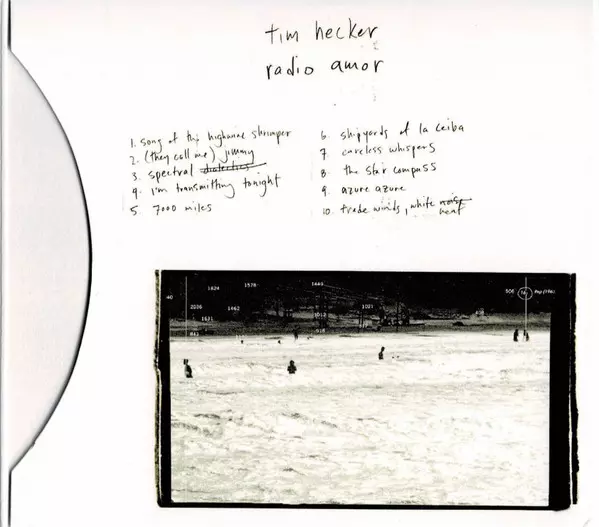 tim hecker
radio amor
1. song of the highwire shrimper
2. (they call me) jimmy
3. spectral dialectics
4. i'm transmitting tonight
5. 7000 miles
6. shipyards of la ceiba
7. careless whispers
8. the star compass
9. azure azure
10. trade winds, white noise
heat
40
2036
1624
1631
843
1578
1462
1443
1012
818
1061
506